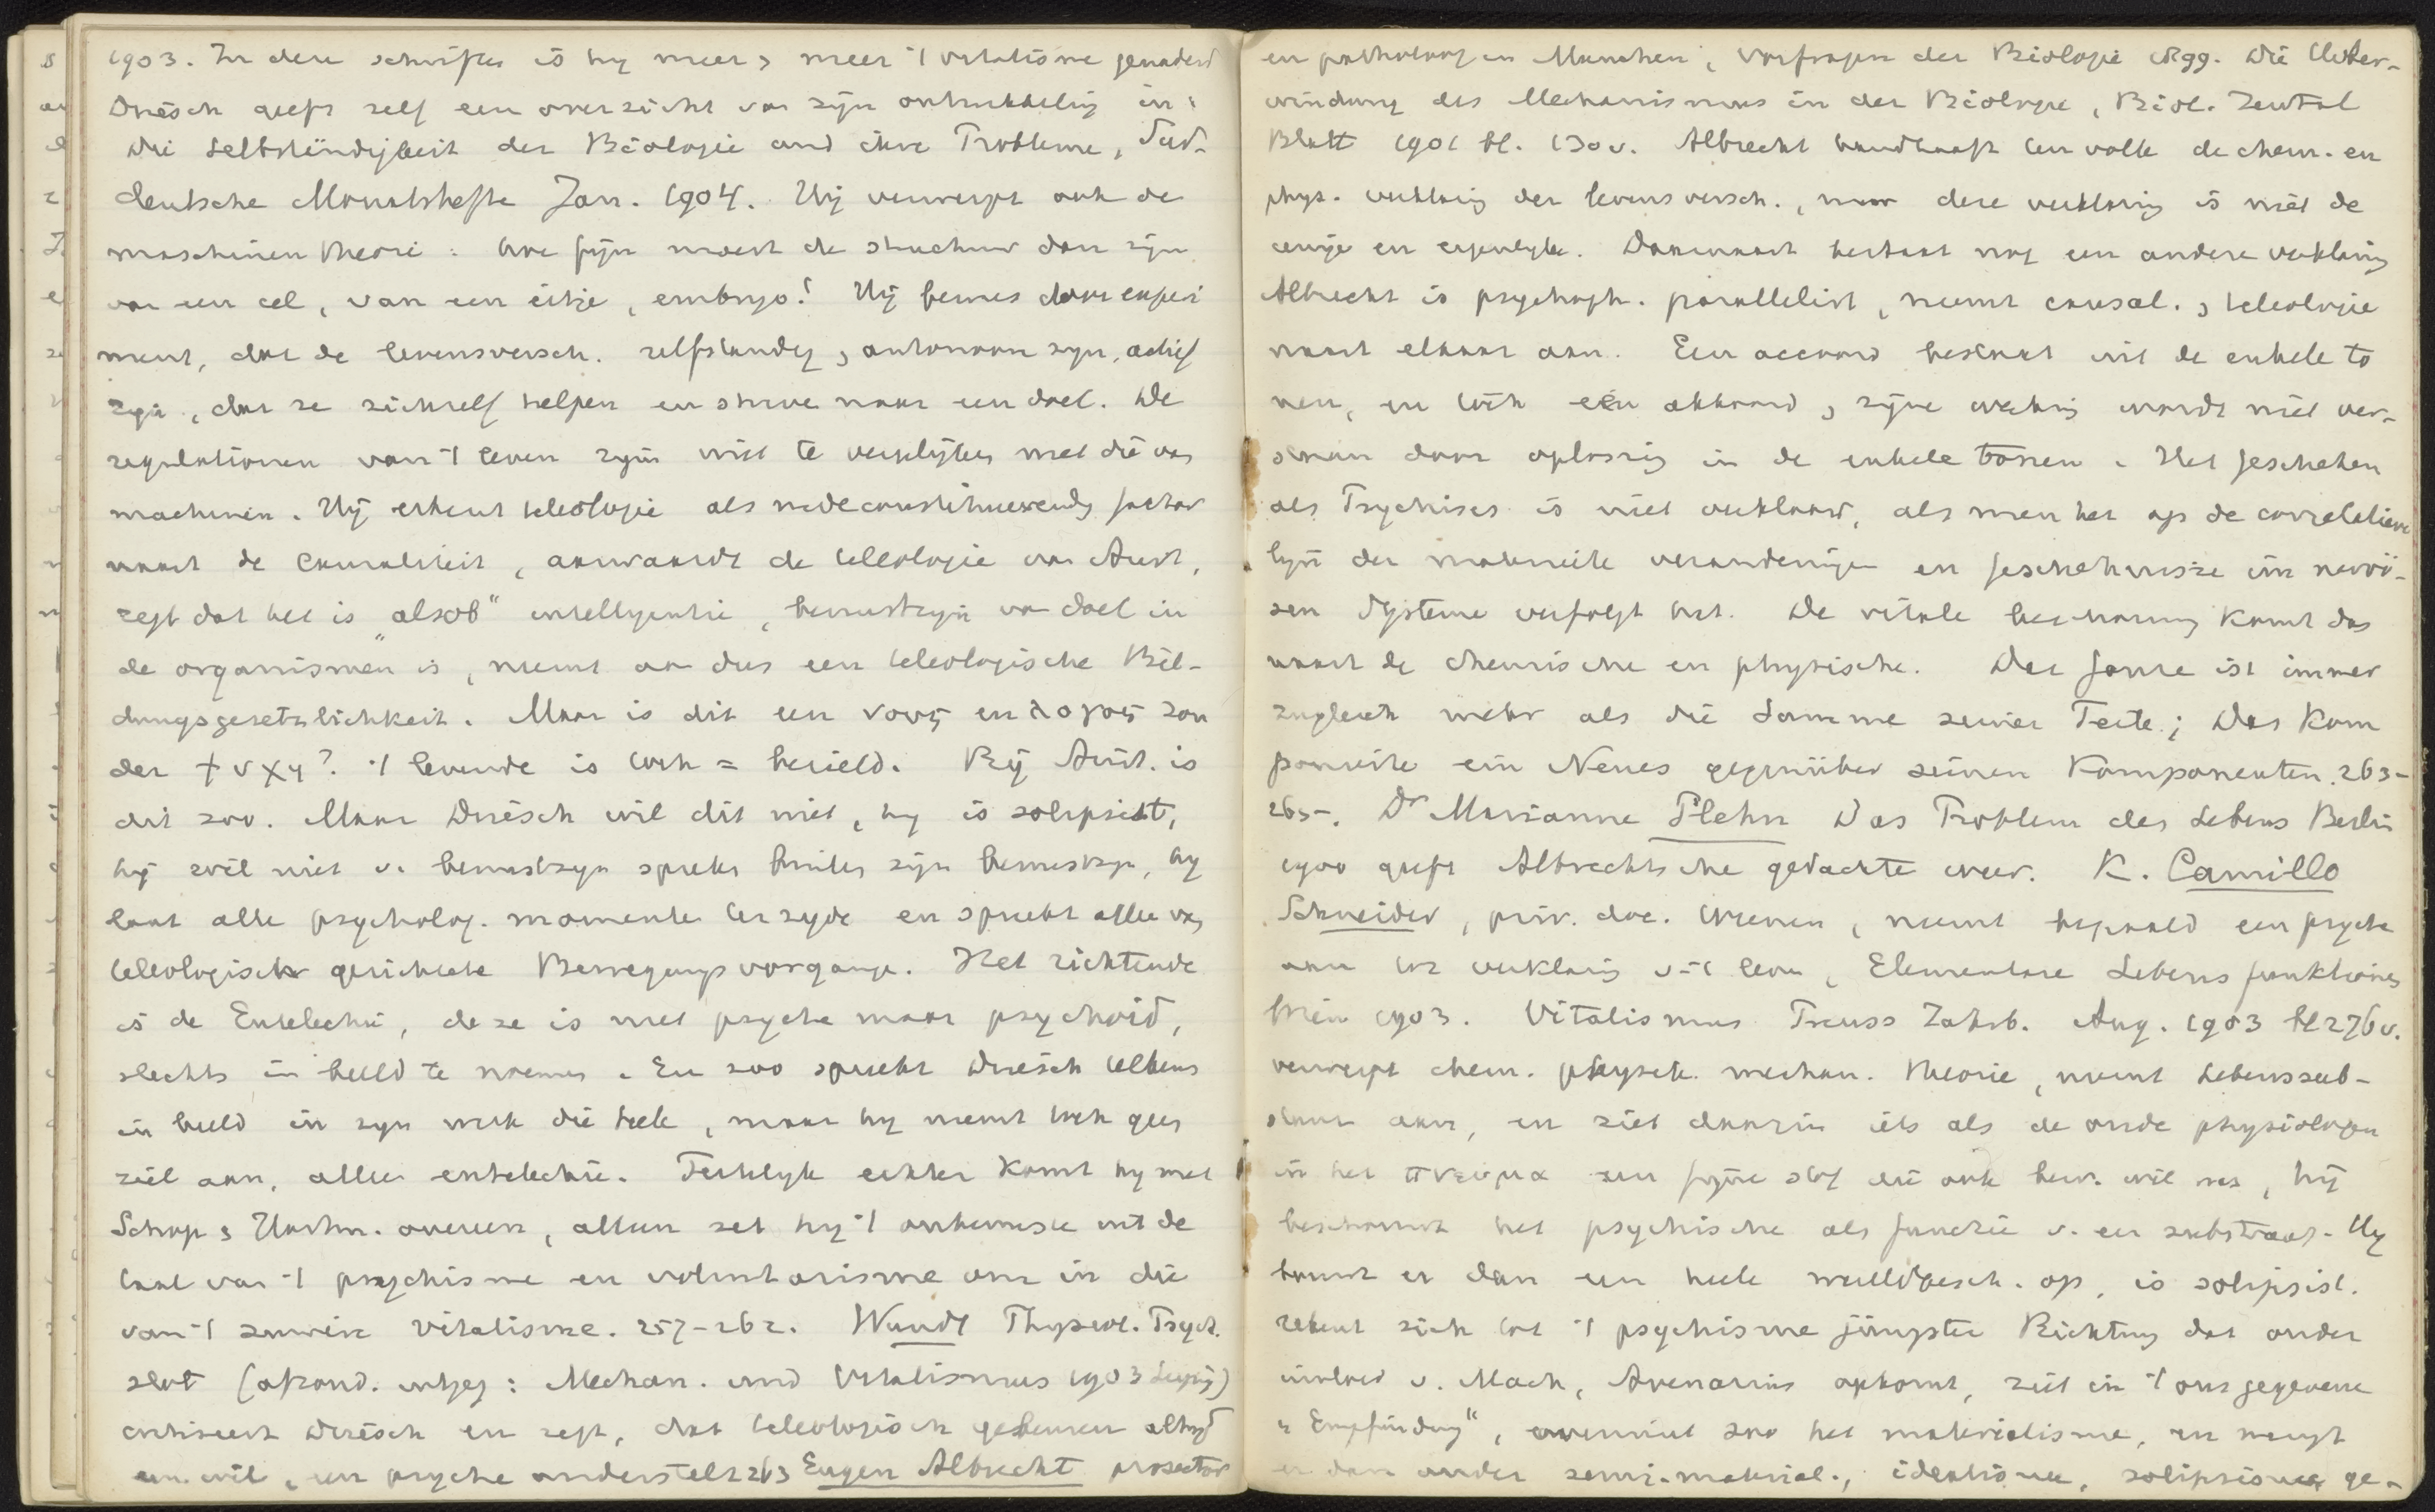 1903. In deze schriften is hy meer & meer 't vitalisme genaderd
Driesch geeft zelf een overzicht van zijn ontwikkeling in:
Die Selbständigkeit der Biologie und ihre Probleme, Süd-
deutsche Monatshefte Jan. 1904. Hij verwerpt ook de
maschinentheorie: hoe fijn moest de structuur dan zijn
van een cel, van een eitje, embryo! Hij bewees door experi
ment, dat de levensversch. zelfstandig & autonoom zyn, actief
zijn, dat ze zichzelf helpen en streven naar een doel. De
regulationen van 't leven zijn niet te vergelijken met die van
machinen. Hij erkent teleologie als medeconstitueerende factor
naast de causaliteit, aanvaardt de teleologie van Arist.,
zegt dat het is „alsob" intelligentie, bewustzijn van doel in
de organismen is, neemt aan dus een teleologische Bil-
dungsgesetzlichkeit. Maar is dit een νους en λογος zon
der ψυχη? 't levende is toch = bezield. Bij Arist. is
dit zoo. Maar Driesch wil dit niet, hy is solipsist,
hij wil niet v. bewustzyn spreken buiten zijn bewustzyn, hy
laat alle psycholog. momenten terzyde en spreekt alleen van
teleologisch gerichtete Bewegungsvorgange. Het richtende
is de Entelechie, deze is niet psyche maar psychoid,
slechts in beeld te noemen. En zoo spreekt Driesch telkens
in beeld in zyn werk die Seele, maar hy neemt toch geen
ziel aan, alleen entelechie. Feitelyk echter komt hy met
Schop & Hartm. overeen, alleen zet hy 't onbewuste uit de
taal van 't psychisme en voluntarisme om in die
van 't zuivere vitalisme. 257-262. Wundt Physiol. Psych.
slot (afzond. uitgeg: Mechan. und Vitalismus 1903 Leipzig)
critiseert Driesch en zegt, dat teleologisch gebeuren altyd
een wil, een psyche onderstelt 263 Eugen Albrecht prosector
en patholoog in Munchen, Vorfragen der Biologie 1899. Die Ueber-
windung des Mechanismus in der Biologie, Biol. Zentral
Blatt 1901 bl. 130 v. Albrecht handhaaft ten volle de chem. en
phys. verklaring der levensversch., maar deze verklaring is niet de
eenige en eigenlyke. Daarnaast bestaat nog een andere verklaring
Albrecht is psychoph. parallelist, neemt causal. & teleologie
naast elkaar aan. Een accoord bestaat uit de enkele to
nen, en toch een akkoord & zijne werking wordt niet ver-
staan door oplossing in de enkele tonen. Het geschehen
als Psychisches is niet verklaard, als men het op de correlatieve
lijn der materieele veranderingen en geschehnisse im nervö-
sen Systeme verfolgt hat. De vitale beschouwing komt dus
naast de chemische en physische. Das Ganze ist immer
zugleich mehr als die Summe seiner Teile; Das Kom
ponierte ein Neues gegenüber seinen Komponenten. 263-
265-. Dr Marianne Plehn Das Problem des Lebens Berlin
1900 geeft Albrechtsche gedachte weer. K. Camillo
Schneider, priv. doc. Weenen, neemt bepaald een psyche
aan ter verklaring v. 't leven, Elementare Lebensfunktionen
Wien 1903. Vitalismus Preuss Jahrb. Aug. 1903 bl 276 v.
verwerpt chem. physch. mechan. theorie, neemt Lebenssub-
stanz aan, en ziet daarin iets als de oude physiologen
in het πνευμα een fijne stof die ook bew. wil was, hij
beschouwt het psychische als functie v. een substraat. Hy
bouwt er dan een heele wereldbesch. op, is solipsist.
rekent zich tot 't psychisme jüngster Richtung dat onder
invloed v. Mach, Avenarius opkomt, ziet in 't ons gegevene
„Empfindung", overwint zoo het materialisme, en mengt
er dan onder semi-material., idealisme, solipsisme ge-